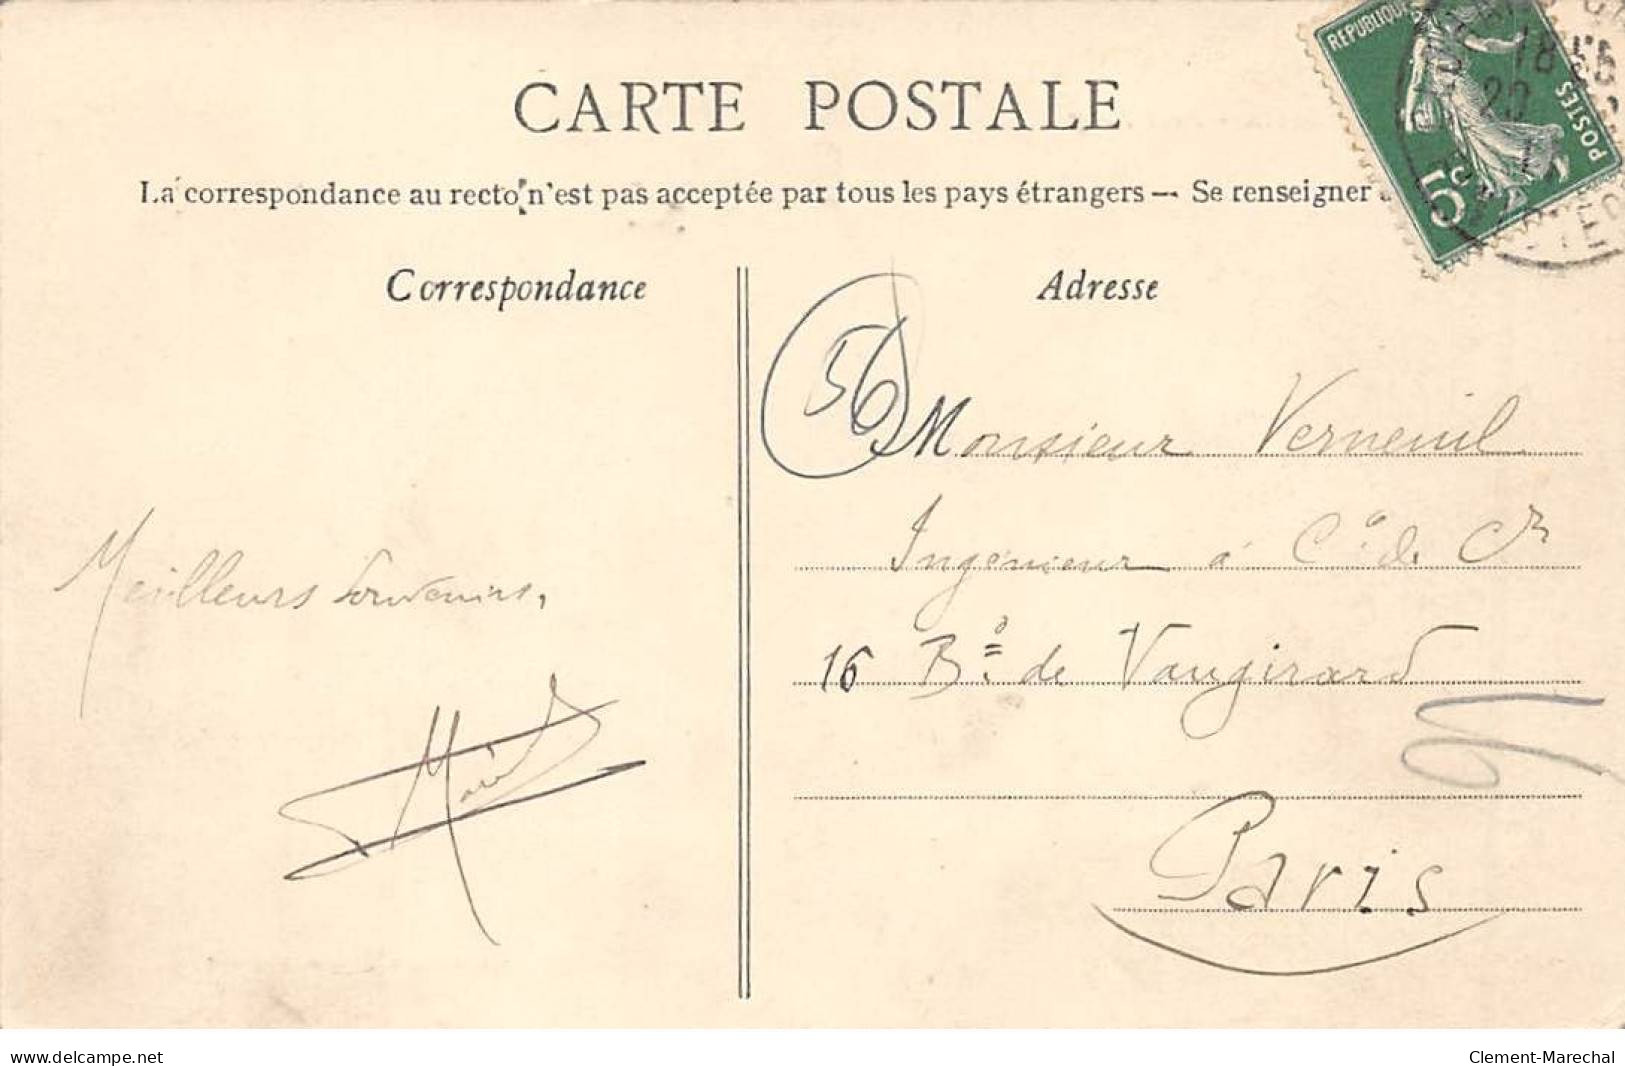 CARTE POSTALE
La correspondance au recto n'est pas acceptée par tous les pays étrangers — Se renseigner
REPUBLIQUE
POSTES
5c
18
20
Correspondance
Adresse
56
Monsieur Verneuil
Ingénieur à Cie de
16 Bd. de Vaugirard
Paris
Meilleurs Souvenirs,
www.delcampe.net
Clement-Marechal